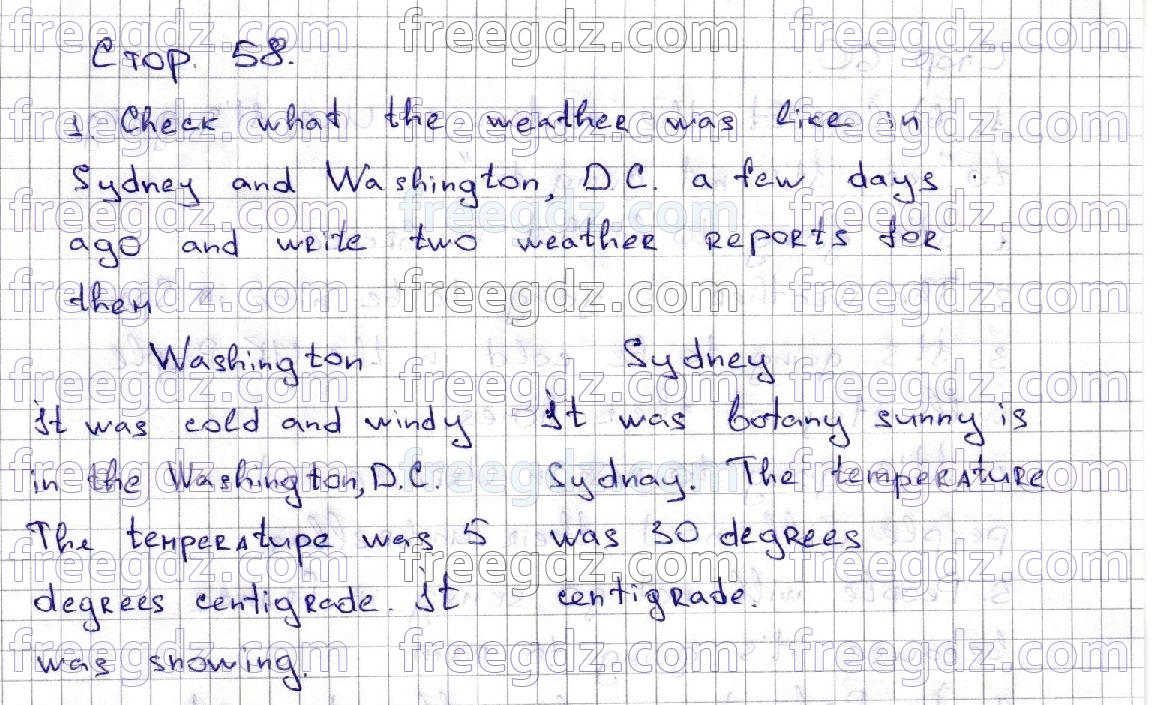 Стор. 58.
1. Check what the weather was like in
Sydney and Washington, D.C. a few days
ago and write two weather reports for
them
Washington
It was cold and windy
in the Washington, D.C.
The temperature was 5
degrees centigrade. It
was snowing.
Sydney
It was botany sunny is
Sydnay. The temperature
was 30 degrees
centigrade.
freegdz.com